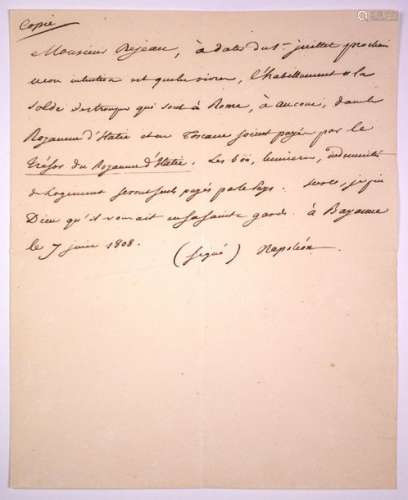 Copie
Monsieur Dejean, à dater du 1er juillet prochain
mon intention est que les vivres, l'habillement et la
solde des troupes qui sont à Rome, à ancone, dans le
Royaume d'Italie et en Toscane soient payés par le
Trésor du Royaume d'Italie. Les bois, lumieres, indemnités
de logement seront seuls payés par le Pays. sur ce, je prie
Dieu qu'il vous ait en sa sainte garde. à Bayonne
le 7 juin 1808.
(signé) Napoléon